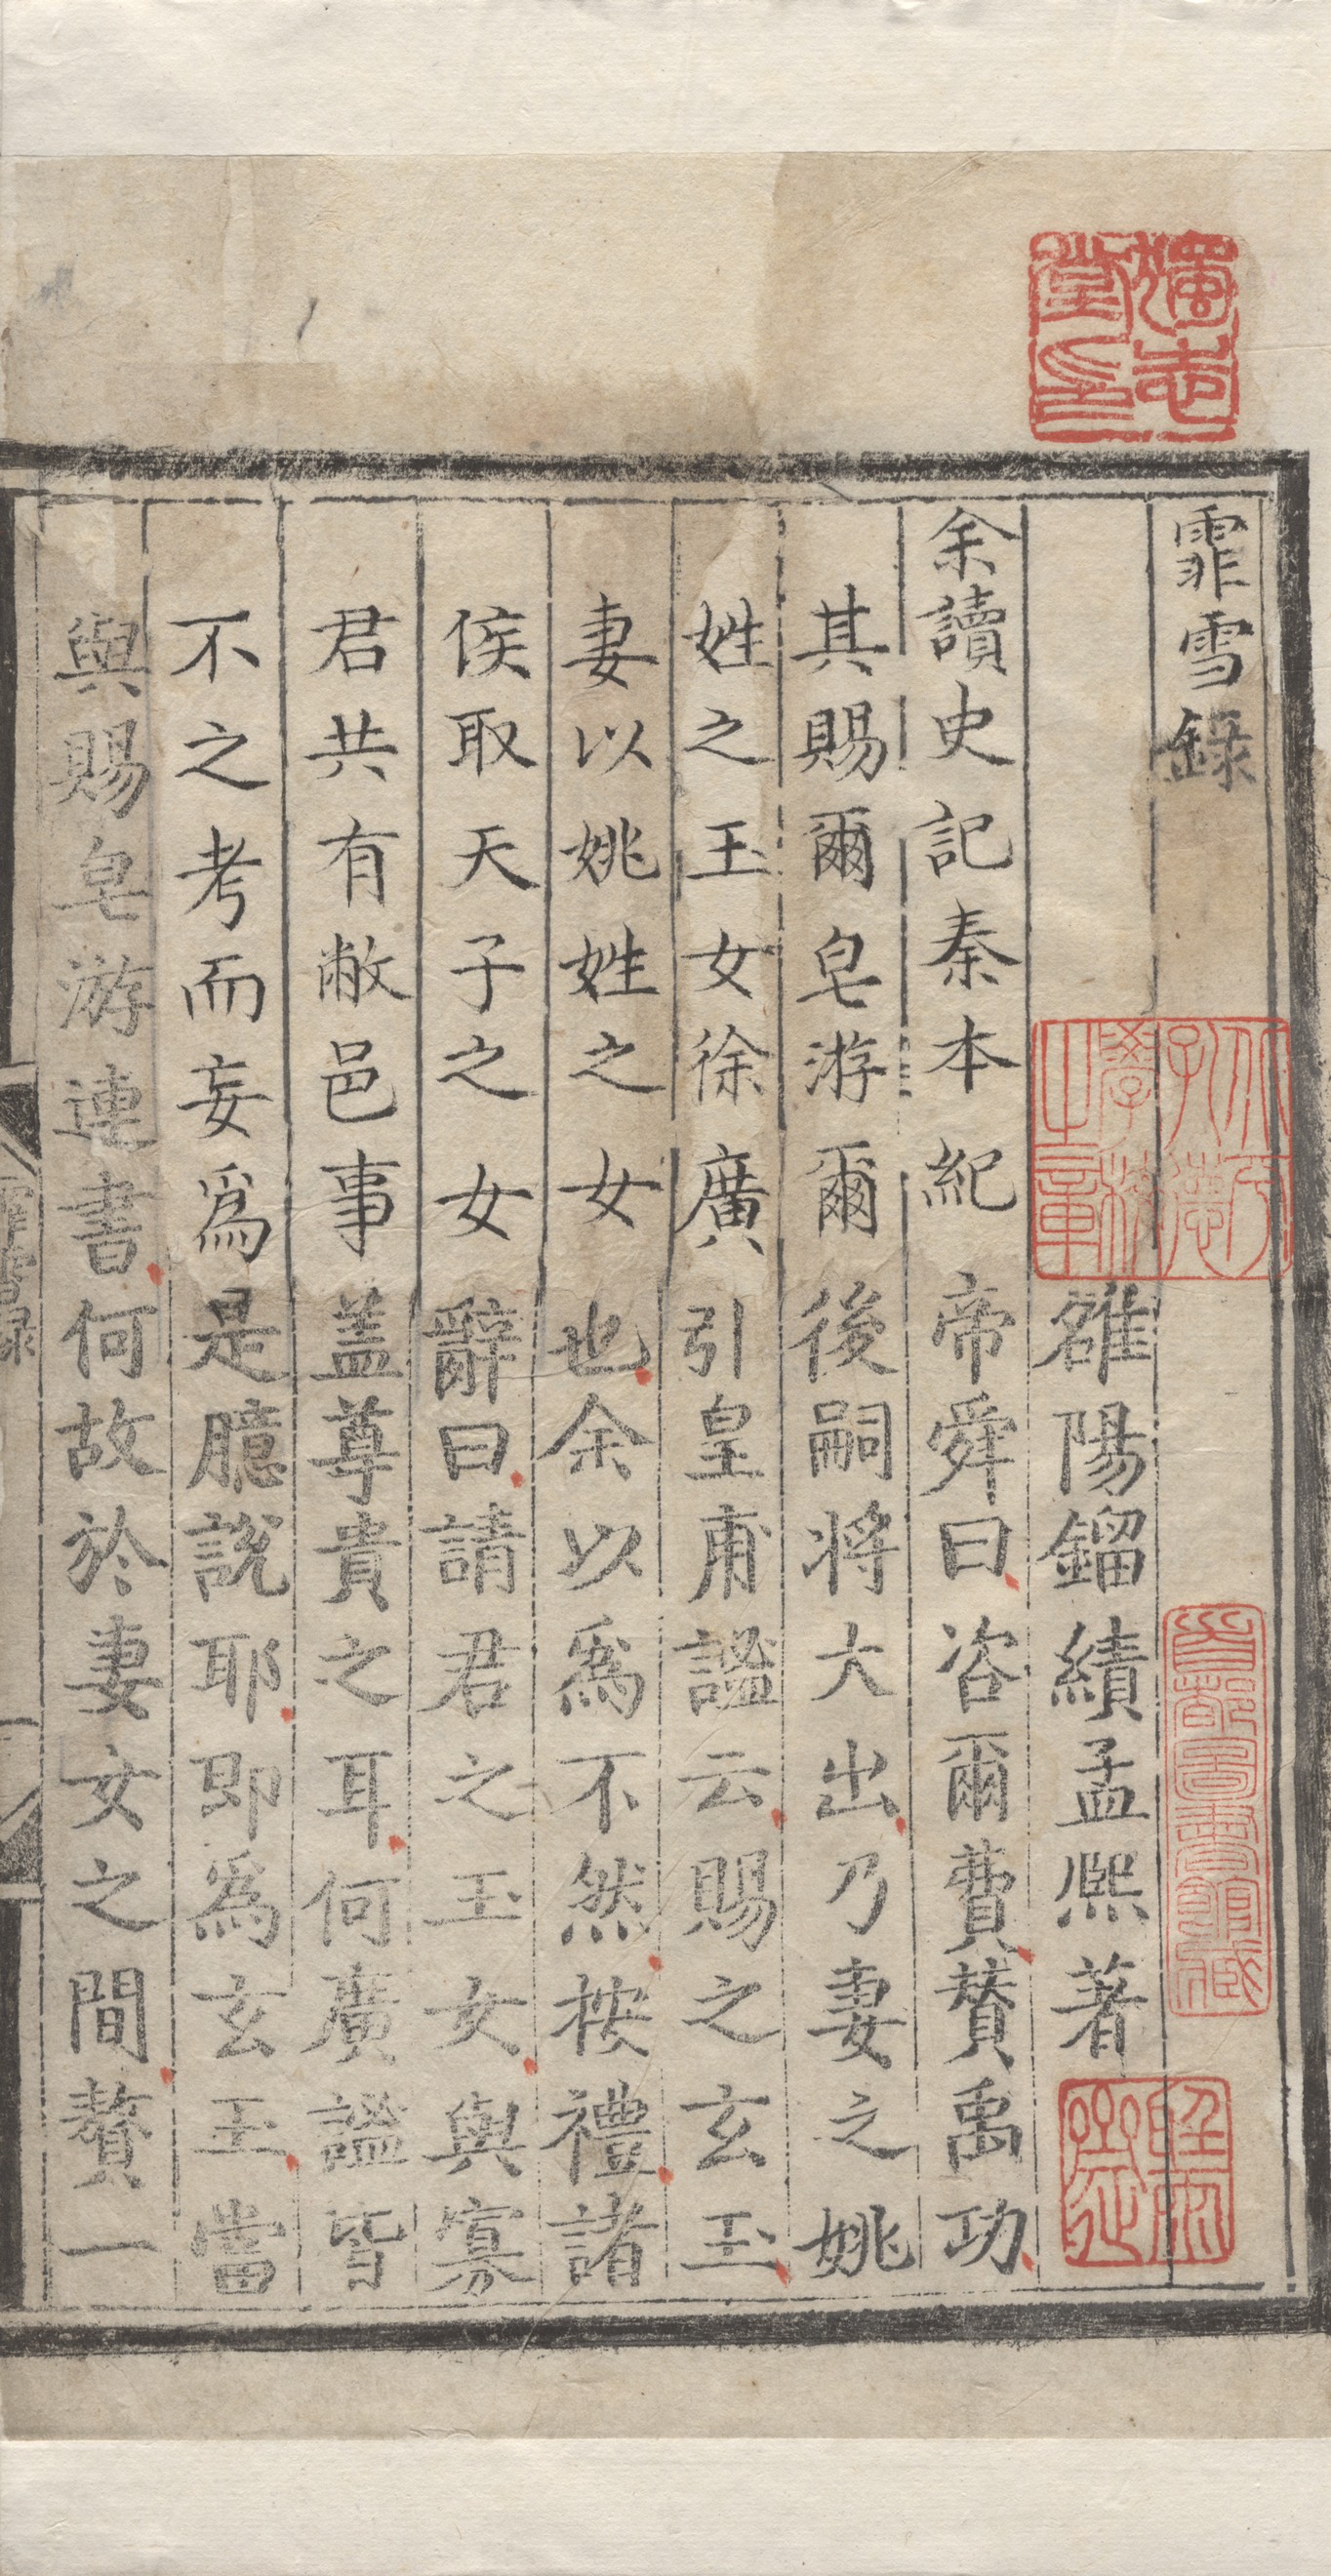 霏雪錄
雒陽鎦績孟熙著
余讀史記秦本紀帝舜曰咨爾費賛禹功
其賜爾皂游爾後嗣将大出乃妻之姚
姓之玉女徐廣引皇甫謐云賜之玄玉
妻以姚姓之女也余以爲不然按禮諸
侯取天子之女辭曰請君之玉女與寡
君共有敝邑事盖尊貴之耳何廣謐皆
不之考而妄爲是臆說耶即爲玄玉當
與賜皂游連書何故於妻女之間贅一
霏雪録